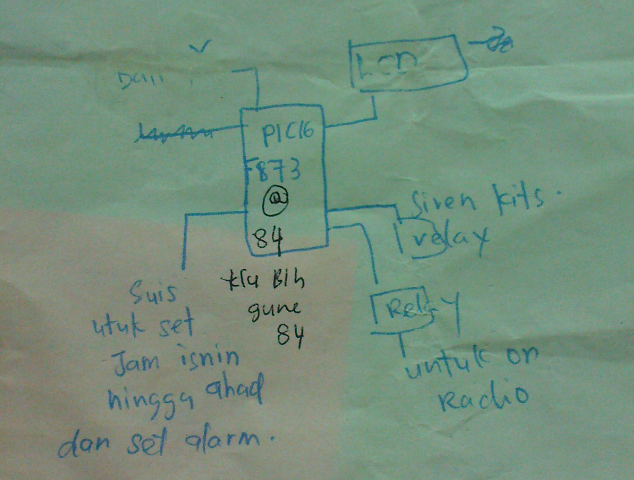 LCD
PIC16
F873
@
84
klu Blh
gune
84
Siren kits.
relay
Relay
untuk on
Radio
Suis
utuk set
Jam isnin
hingga ahad
dan set alarm.